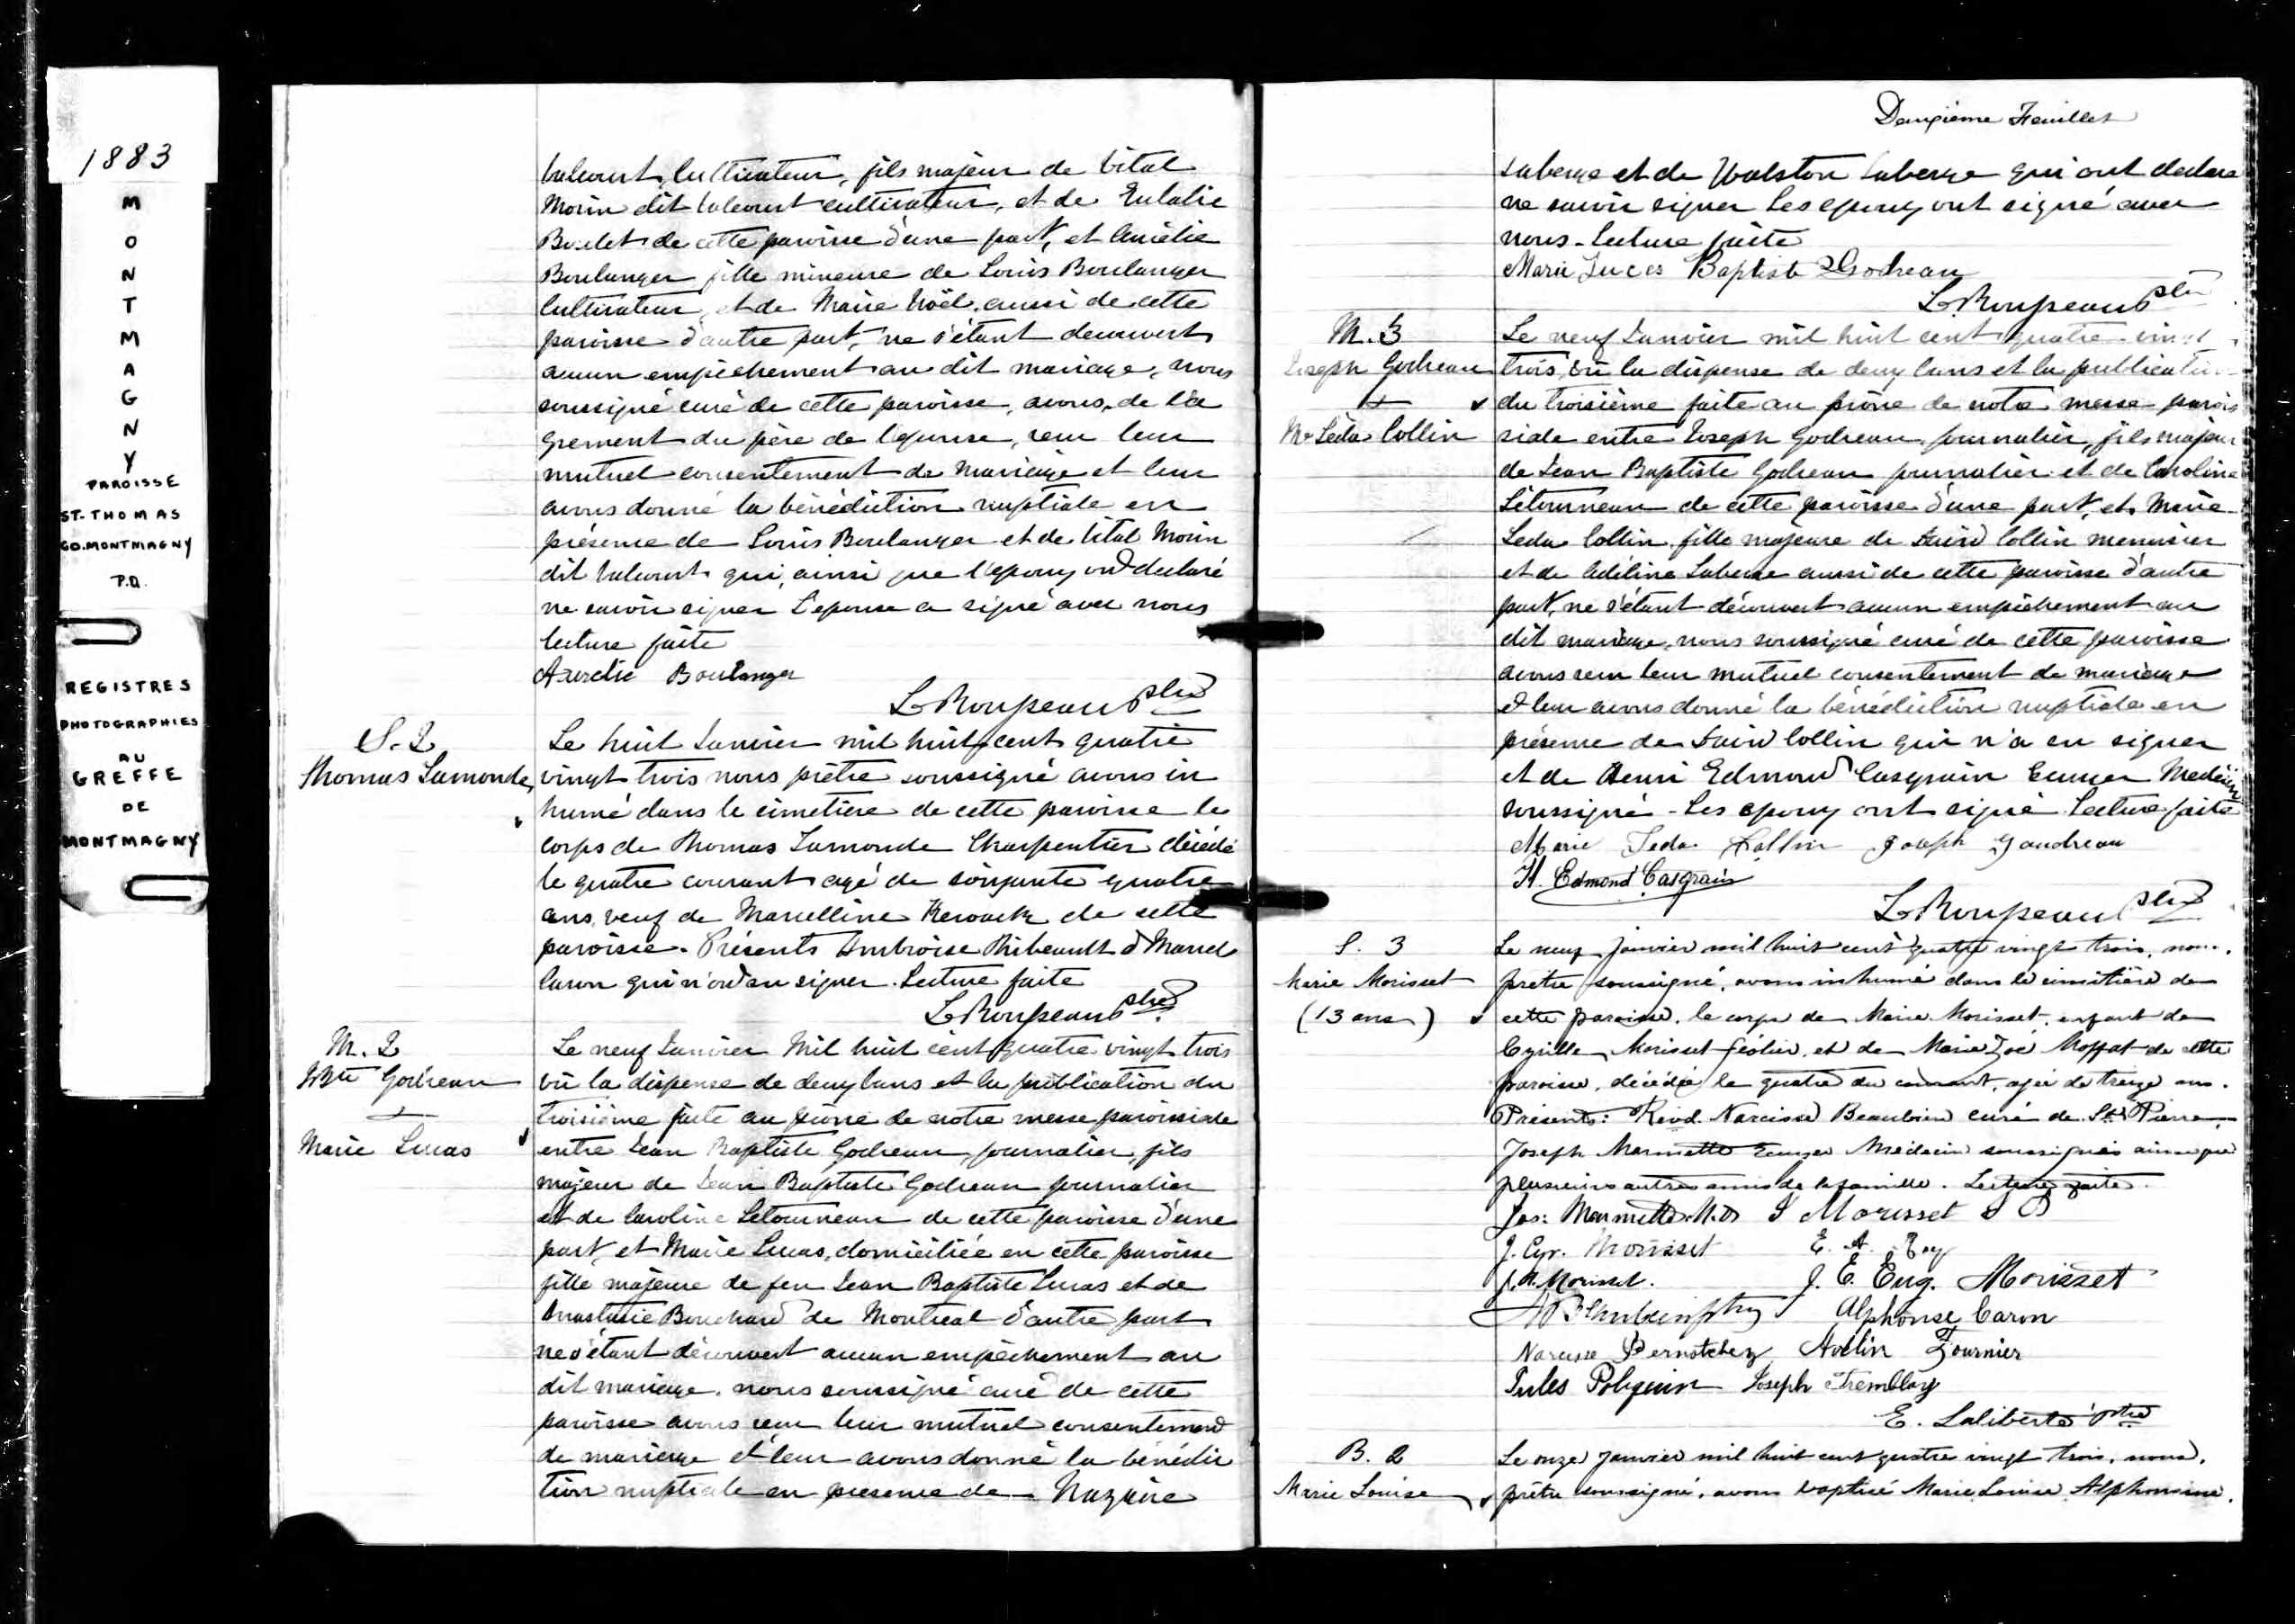 1883
MONTMAGNY
PAROISSE
ST-THOMAS
CO. MONTMAGNY
P.Q.
REGISTRES
PHOTOGRAPHIES
AU
GREFFE
DE
MONTMAGNY
Valcourt, cultivateur, fils majeur de Vital
Morin dit Valcourt cultivateur, et de Eulalie
Boulet de cette paroisse d'une part, et Aurélie
Boulanger fille mineure de Louis Boulanger
cultivateur, et de Marie Noël, aussi de cette
paroisse d'autre part, ne s'étant decouvert
aucun empêchement au dit mariage, nous
soussigné curé de cette paroisse, avons, de l'a
grement du père de l'epouse, reçu leur
mutuel consentement de mariage et leur
avons donné la bénédiction nuptiale en
présence de Louis Boulanger et de Vital Morin
dit Valcourt qui, ainsi que l'epoux ont declaré
ne savoir signer L'epouse a signé avec nous
lecture faite
Aurelie Boulanger
L. Roupeau Ptre
S. 2
Thomas Lamonde
Le huit Janvier mil huit cent quatre
vingt trois nous prêtre soussigné avons in
humé dans le cimetière de cette paroisse le
corps de Thomas Lamonde Charpentier décédé
le quatre courant agé de soixante quatre
ans, veuf de Marcelline Kerouack de cette
paroisse. Présents Ambroise Thibeault & Marcel
Caron qui n'ont su signer. Lecture faite
L. Roupeau Ptre
M. 2
J Bte Godreau
+
Marie Lucas
Le neuf Janvier Mil huit cent quatre vingt trois
vû la dispense de deux bans et la publication du
troisième faite au prône de notre messe paroissiale
entre Jean Baptiste Godreau, journalier, fils
majeur de Jean Baptiste Godreau journalier
et de Caroline Letourneau de cette paroisse d'une
part, et Marie Lucas, domiciliée en cette paroisse
fille majeure de feu Jean Baptiste Lucas et de
Anastasie Bouchard de Montreal d'autre part
ne s'étant découvert aucun empêchement au
dit mariage, nous soussigné curé de cette
paroisse avons reçu leur mutuel consentement
de mariage et leur avons donné la bénédic
tion nuptiale en presence de Nazaire
Deuxième Feuillet
Laberge et de Walston Laberge qui ont declaré
ne savoir signer Les epoux ont signé avec
nous. Lecture faite
Marie Luces Baptiste Godreau
L. Roupeau Ptre
M. 3
Joseph Godreau
+
Me Léda Collin
Le neuf Janvier mil huit cent quatre vingt
trois, vû la dispense de deux bans et la publication
du troisième faite au prône de notre messe parois
siale entre Joseph Godreau, journalier, fils majeur
de Jean Baptiste Godreau journalier et de Caroline
Létourneau de cette paroisse d'une part, et Marie
Leda Collin fille majeure de David Collin menuisier
et de Adéline Laberge aussi de cette paroisse d'autre
part, ne s'étant découvert aucun empêchement au
dit mariage, nous soussigné curé de cette paroisse
avons reçu leur mutuel consentement de mariage
et leur avons donné la bénédiction nuptiale en
présence de David Collin qui n'a su signer
et de Henri Edmond Casgrain Ecuyer Medecin
soussigné - Les epoux ont signé Lecture faite
Marie Leda Collin Joseph Gaudreau
H. Edmond Casgrain
L. Roupeau Ptre
S. 3
Marie Morisset
(13 ans)
Le neuf Janvier mil huit cent quatre vingt trois, nous.
prêtre soussigné, avons inhumé dans le cimitière de
cette paroisse, le corps de Marie Morisset, enfant de
Cyrille Morisset Géolier, et de Marie Zoé Moffat de cette
paroisse, décédée le quatre du courant, agée de treize ans.
Présents: Révd. Narcisse Beaubien curé de St. Pierre,
Joseph Marmette Ecuyer Médecin soussignés ainsi que
plusieurs autres amis de la famille. Lecture faite.
Jos: Marmette M.D.
Morisset
J. Cyr. Morisset E. A. Roy
J. N. Morisset. J. E. Eug. Morisset
Alphonse Caron
Narcisse Bernatchez Avelin Fournier
Jules Poliquin Joseph Tremblay
E. Laliberté Ptre
B. 2
Marie Louise
Le onze Janvier mil huit cent quatre vingt trois, nous,
prêtre soussigné, avons baptisé Marie Louise Alphonsine.